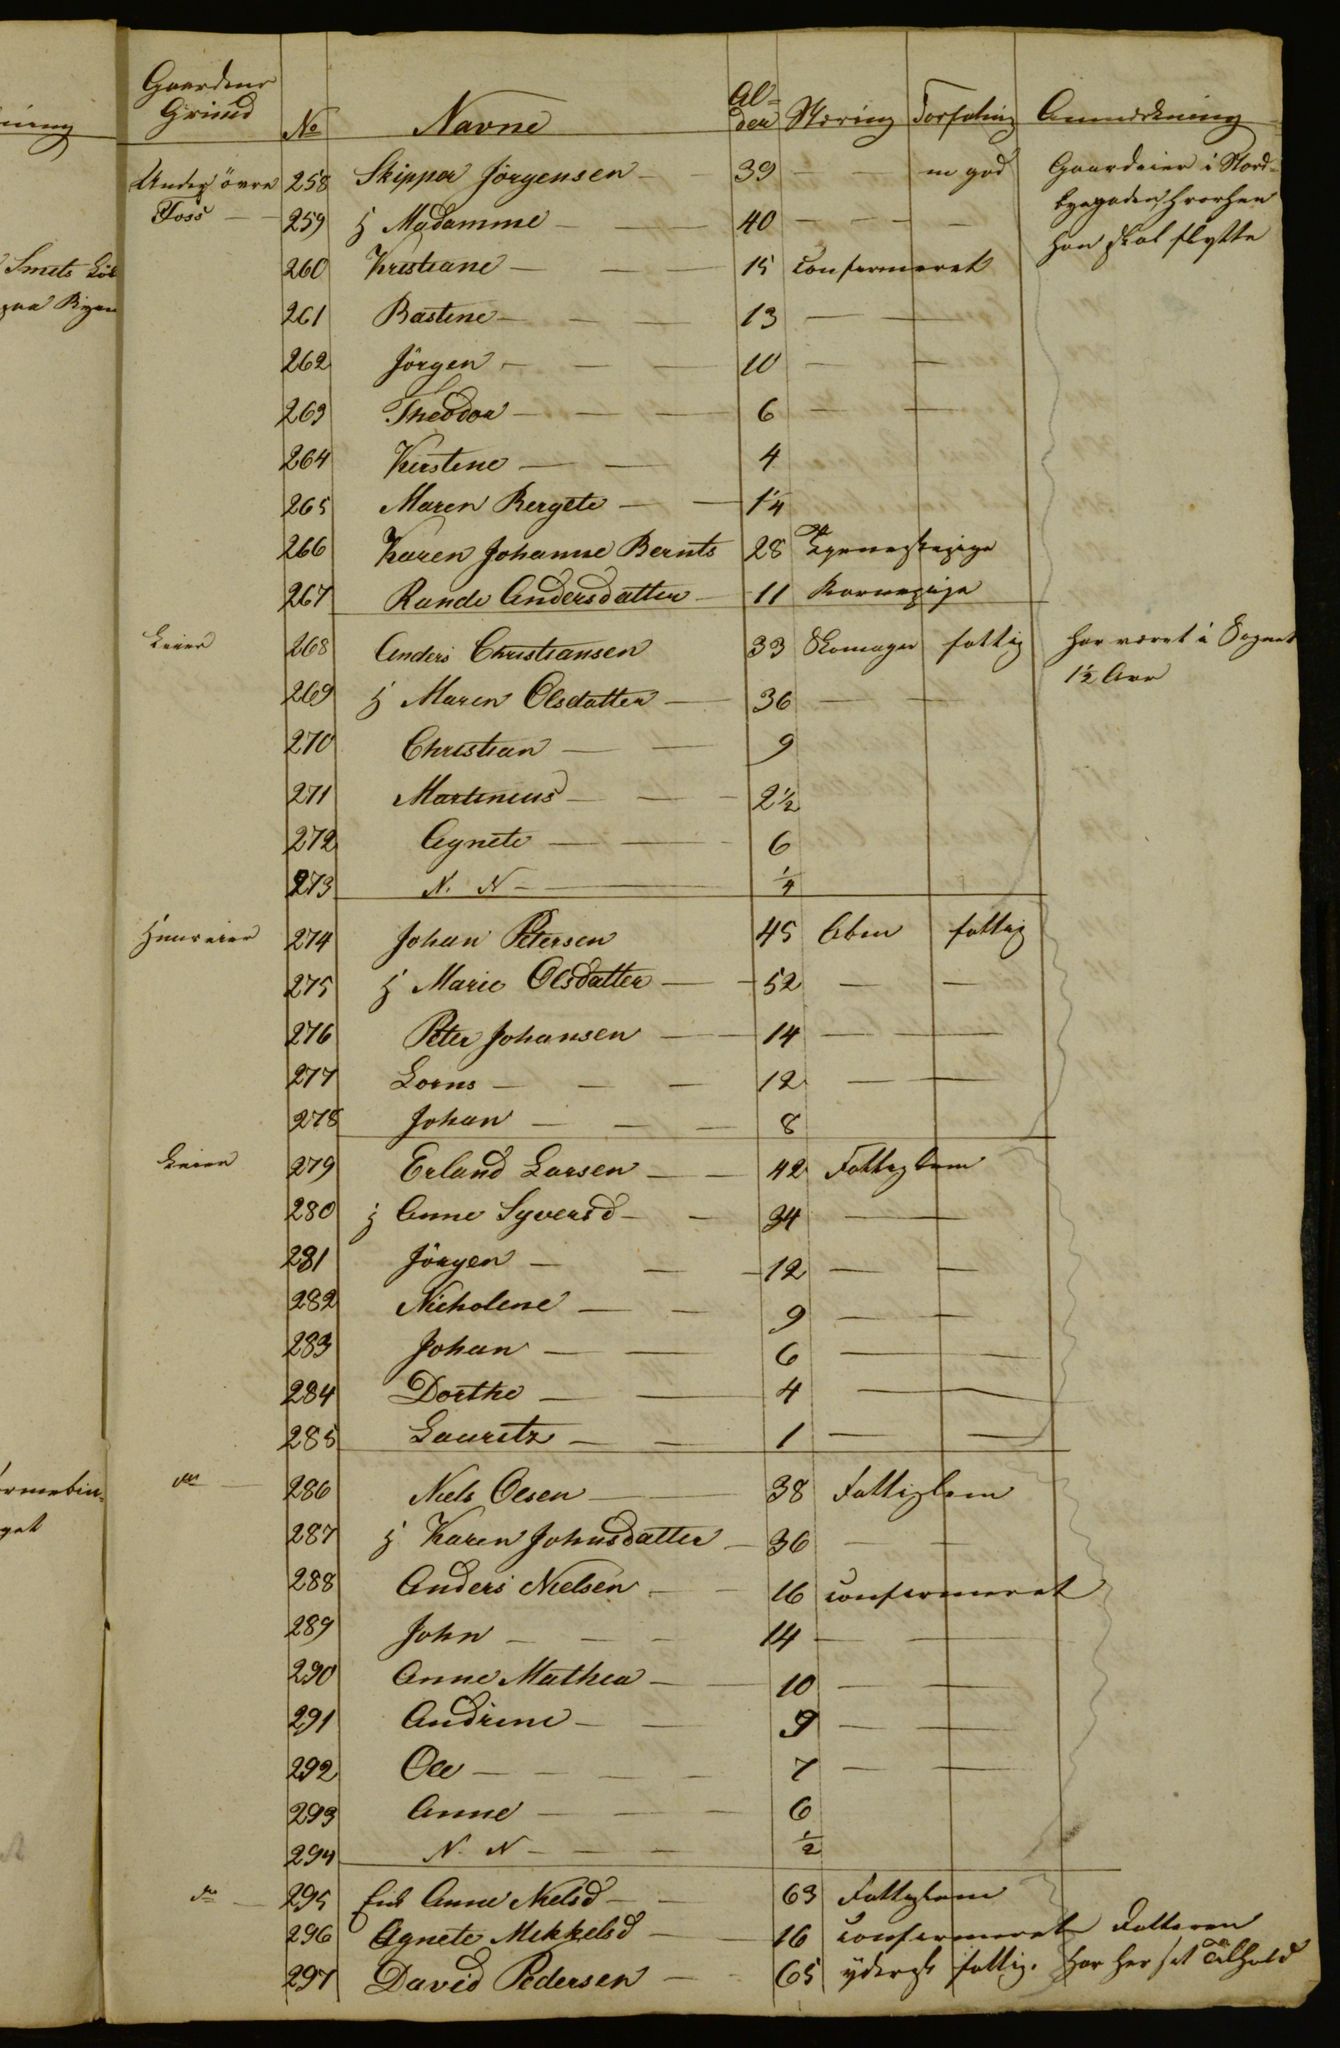 Gaardens Grund No Navne Al-der Næring Forfatning Anmærkning
Under övre 258 Skipper Jörgensen 39 — — m god Gaardeier i Nord-
Foss — 259 h Madamme 40 — — — byegaden hvorhen
260 Kristiane 15 confirmeret han skal flytte
Smets
paa Ryen
261 Bastine 13 — —
262 Jörgen 10 — —
263 Theodor 6 — —
264 Kirstine 4
265 Maren Bergete 1¼
266 Karen Johanne Bernts 28 Tjenestepige
267 Rande Andersdatter 11 Barnepige
Leier 268 Anders Christiansen 33 Skomager fattig har været i Sognet
269 h Maren Olsdatter 36 — — 1½ Aar
270 Christian 9
271 Martinius 2½
272 Agnete 6
273 N. N ¼
Huuseier 274 Johan Petersen 45 fattig
275 h Marie Olsdatter 52 — —
276 Peter Johansen 14 — —
277 Lorns 12 — —
278 Johan 8
Leier 279 Erland Larsen 42 Fattiglem
280 h Anne Syversd 34 — —
281 Jörgen 12 — —
282 Nicholene 9 — —
283 Johan 6 — —
284 Dorthe 4 — —
285 Lauritz 1 — —
do — 286 Niels Olsen 38 Fattiglem
287 h Karen Johnsdatter 36 — —
288 Anders Nielsen 16 confirmeret
289 John 14 — —
290 Anne Mathea 10 — —
291 Andrine 9 — —
292 Ole 7 — —
293 Anne 6
294 N. N ½
do — 295 Enk Anne Nielsd 63 Fattiglem
296 Agnete Mikkelsd 16 confirmeret Datteren
297 David Pedersen 65 yderst fattig. har her sit Tilhold